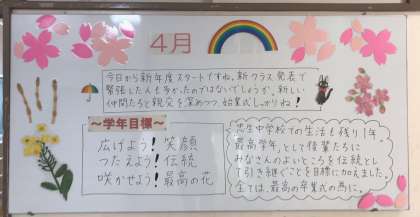 4月
今日から新年度スタートですね。新クラス発表で
緊張した人も多かったのではないでしょうか。新しい
仲間たちと親交を深めつつ、始業式しっかりね!
～学年目標～
広げよう!笑顔
つたえよう!伝統
咲かせよう!最高の花
忠生中学校での生活も残り1年。
最高学年として後輩たちに
みなさんのよいところを伝統とし
て引き継ぐことを目標に加えました。
全ては、最高の卒業式の為に。